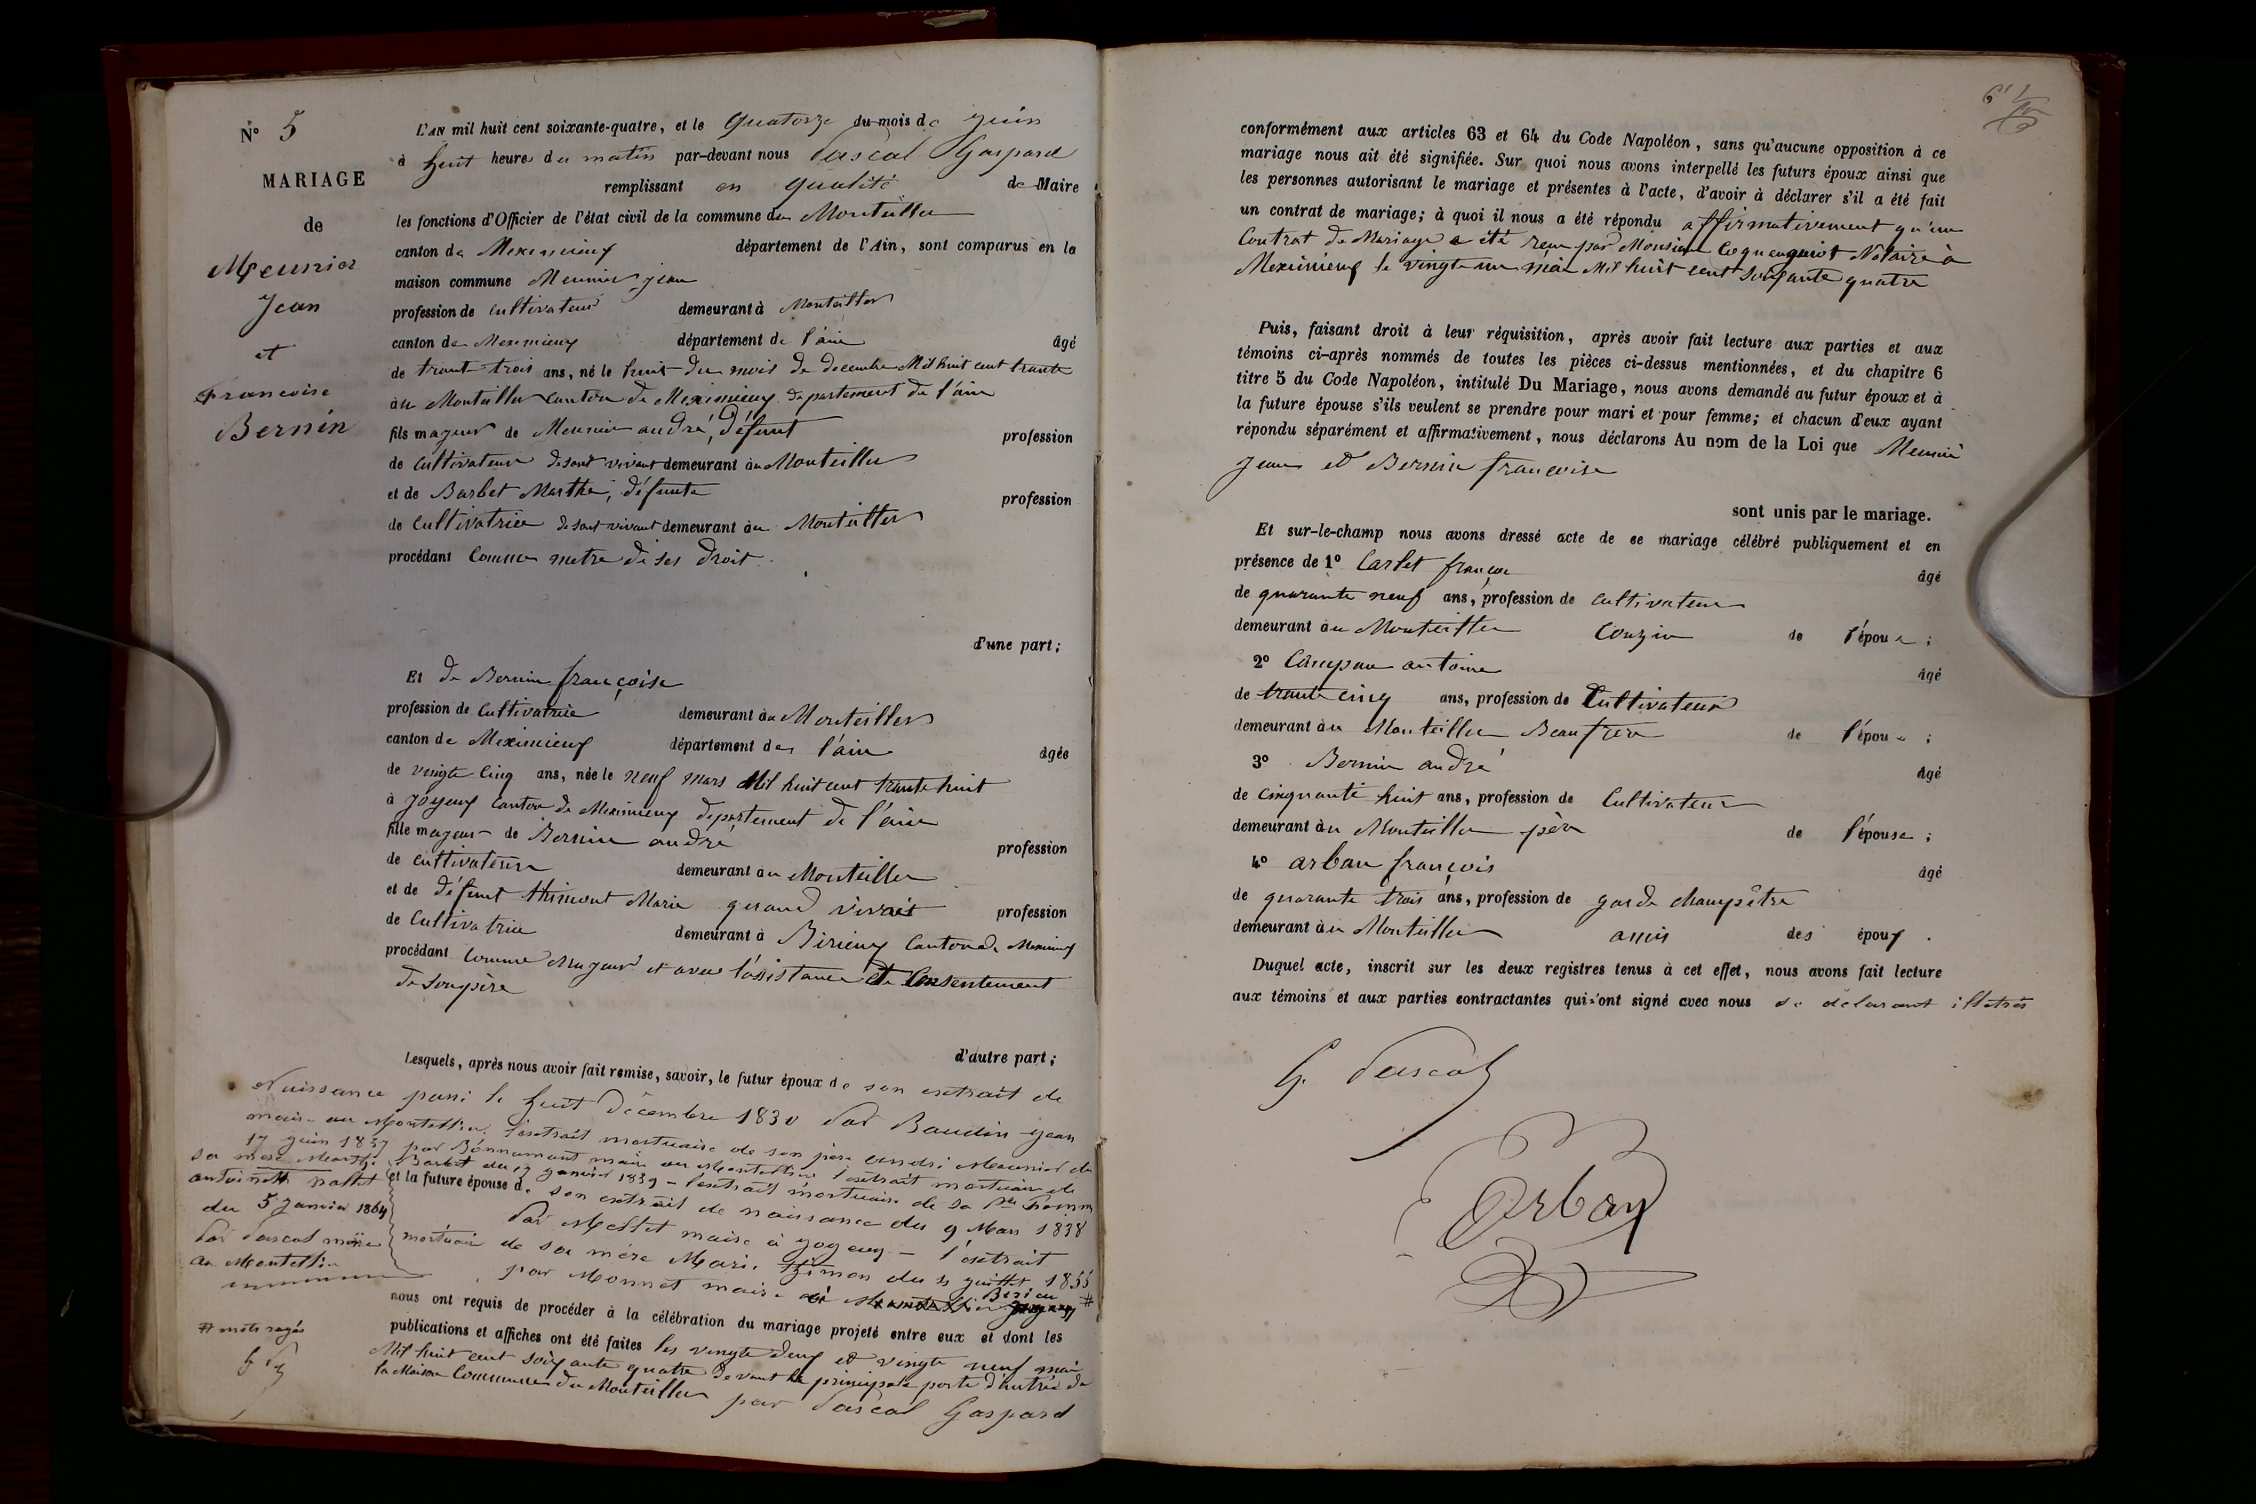 N° 5
MARIAGE
de
Meunier
Jean
et
Francoise
Bernin
L'AN mil huit cent soixante-quatre, et le quatorze du mois de juin
à huit heures du matin par-devant nous Pascal Gaspard
remplissant en qualité de Maire
les fonctions d'Officier de l'état civil de la commune du Montellier
canton de Meximieux département de l'Ain, sont comparus en la
maison commune Meunier jean
profession de cultivateur demeurant à Montellier
canton de Meximieux département de l'ain âgé
de trante trois ans, né le huit du mois de decembre Mil huit cent trante
àu Montellier canton de Meximieux departement de l'ain
fils majeur de Meunier andré, défunt profession
de cultivateur de sont vivant demeurant àu Montellier
et de Barbet Marthe, défunte profession
de cultivatrice de sont vivant demeurant àu Montellier
procédant comme metre de ses droit
d'une part;
Et de Bernin françoise
profession de cultivatrice demeurant àu Montellier
canton de Meximieux département de l'ain âgée
de vingte cinq ans, née le neuf mars Mil huit cent trante huit
à joyeux canton de Meximieux departement de l'ain
fille majeur de Bernin andré profession
de cultivateur demeurant àu Montellier
et de défunt thimont Marie quand vivait profession
de cultivatrice demeurant à Birieux canton de Meximieux
procédant comme Majeur et avec l'assistance et consentement
de son père
d'autre part;
Lesquels, après nous avoir fait remise, savoir, le futur époux de son extrait de
Naissance passé le huit Décembre 1830 par Baudin jean
maire au Montellier. l'extrait mortuaire de son père andré Meunier du
17 juin 1837 par Bonnamant maire au Montellier l'extrait mortuaire de
sa mère Marthe Barbet du 17 janvier 1839 – l'extrait mortuaire de sa 1re femme
antoinette nallet
du 5 janvier 1864
par Pascal maire
au Montellier
et la future épouse de son extrait de naissance du 9 Mars 1838
par Mollet maire à joyeux – l'extrait
mortuaire de sa mère Marie thimon du juillet 1855
par Monnet maire à Birieu #
nous ont requis de procéder à la célébration du mariage projeté entre eux et dont les
publications et affiches ont été faites les vingte deux et vingte neuf mai
Mil huit cent soixante quatre devant la principale porte d'entrée de
la Maison Commune du Montellier par Pascal Gaspard
# mots rayés
G P
conformément aux articles 63 et 64 du Code Napoléon, sans qu'aucune opposition à ce
mariage nous ait été signifiée. Sur quoi nous avons interpellé les futurs époux ainsi que
les personnes autorisant le mariage et présentes à l'acte, d'avoir à déclarer s'il a été fait
un contrat de mariage; à quoi il nous a été répondu affirmativement qu'un
Contrat de Mariage a été reçu par Monsieur Notaire à
Meximieux le vingte un mai Mil huit cent soixante quatre
Puis, faisant droit à leur réquisition, après avoir fait lecture aux parties et aux
témoins ci-après nommés de toutes les pièces ci-dessus mentionnées, et du chapitre 6
titre 5 du Code Napoléon, intitulé Du Mariage, nous avons demandé au futur époux et à
la future épouse s'ils veulent se prendre pour mari et pour femme; et chacun d'eux ayant
répondu séparément et affirmativement, nous déclarons Au nom de la Loi que Meunié
jean et Bernin françoise
sont unis par le mariage.
Et sur-le-champ nous avons dressé acte de ce mariage célébré publiquement et en
présence de 1° Carlet françois âgé
de quarante neuf ans, profession de cultivateur
demeurant àu Montellier Couzin de l'épou ;
2° Campan antoine âgé
de trante cinq ans, profession de Cultivateur
demeurant àu Montellier Beaufrère de l'épou ;
3° Bernin andré âgé
de cinquante huit ans, profession de Cultivateur
demeurant àu Montellier père de l'épouse ;
4° arban françois âgé
de quarante trois ans, profession de garde champêtre
demeurant àu Montellier amis des époux .
Duquel acte, inscrit sur les deux registres tenus à cet effet, nous avons fait lecture
aux témoins et aux parties contractantes qui ont signé avec nous se déclarant illetrés
G. Pascal
Arban